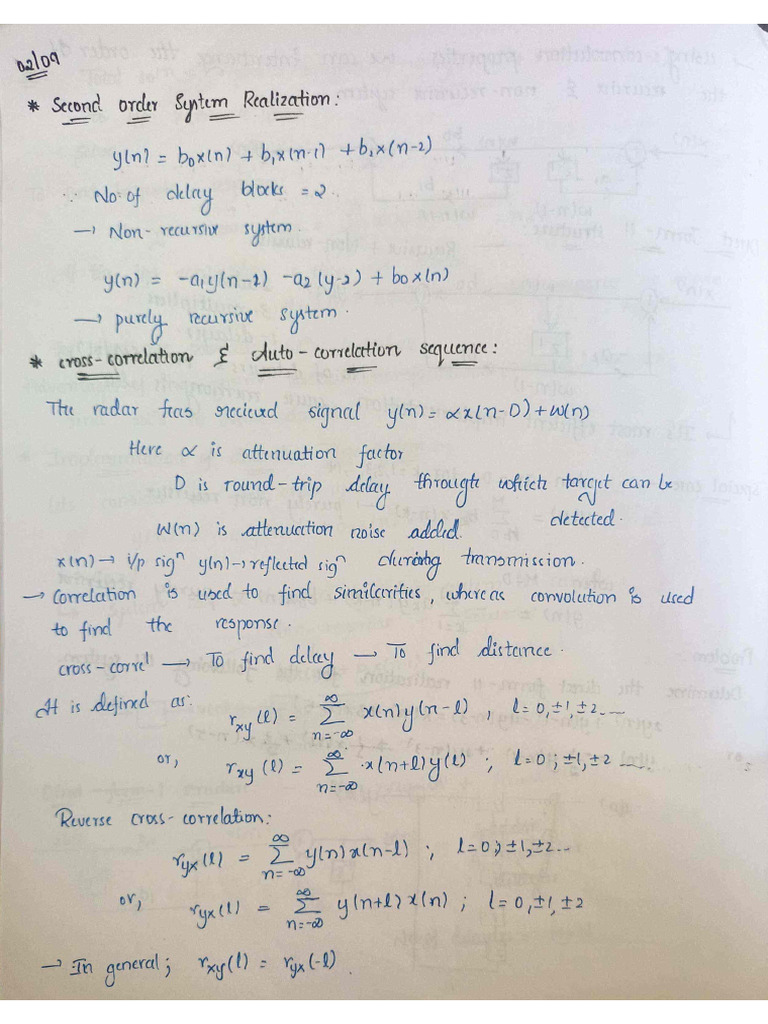 02/09
* Second order System Realization:
y(n) = b0x(n) + b1x(n-1) + b2x(n-2)
No. of delay blocks = 2.
→ Non-recursive system.
y(n) = -a1y(n-1) -a2(y-2) + b0x(n)
→ purely recursive system.
* cross-correlation & Auto-correlation sequence:
The radar has recieved signal y(n) = αx(n-D)+W(n)
Here α is attenuation factor
D is round-trip delay through which target can be detected.
W(n) is attenuation noise added during transmission.
x(n) → i/p sigⁿ y(n) → reflected sigⁿ
→ Correlation is used to find similarities, whereas convolution is used
to find the response.
cross-correˡ → To find delay → To find distance.
It is defined as:
rxy(l) = ∞Σn=-∞ x(n)y(n-l) , l = 0, ±1, ±2.....
or, rxy(l) = ∞Σn=-∞ x(n+l)y(l) ; l = 0, ±1, ±2 .....
Reverse cross-correlation:
ryx(l) = ∞Σn=-∞ y(n)x(n-l) ; l = 0, ±1, ±2...
or, ryx(l) = ∞Σn=-∞ y(n+l)x(n) ; l = 0, ±1, ±2
→ In general; rxy(l) = ryx(-l).